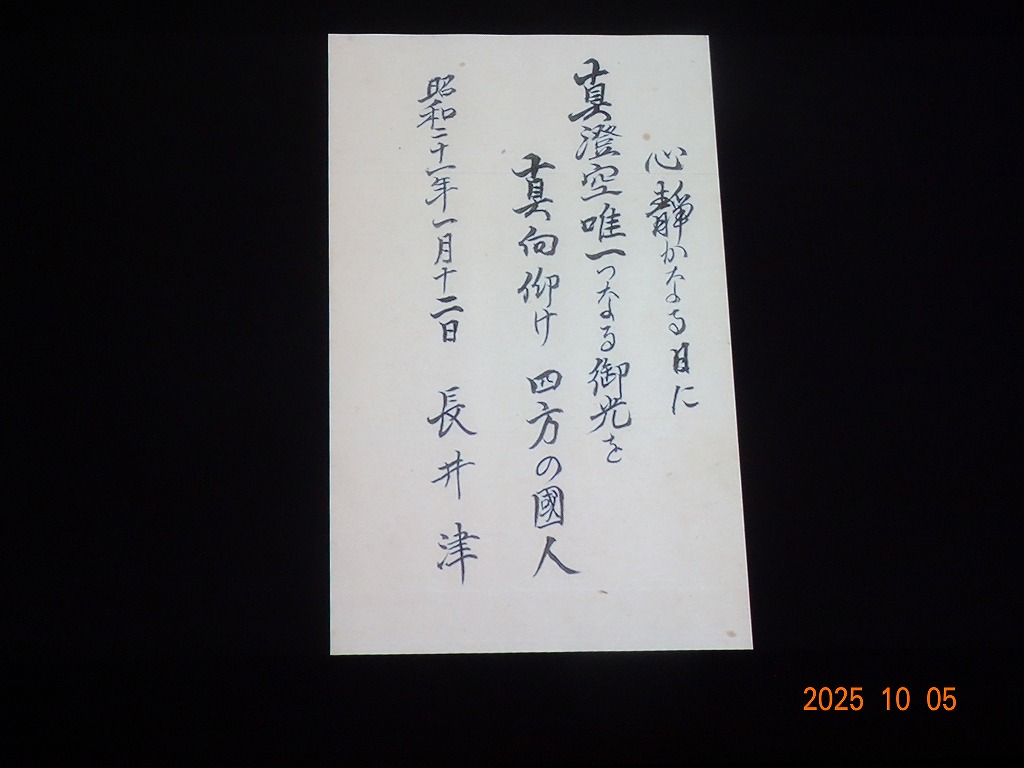 心靜かなる日に
真澄空唯一つなる御光を
真向仰け 四方の國人
昭和二十一年一月十二日 長井津
2025 10 05